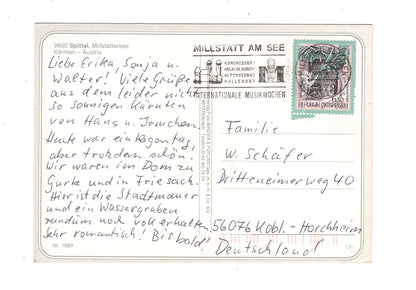 9800 Spittal, Millstättersee
Kärnten – Austria
Liebe Erika, Sonja u.
Walter! Viele Grüße
aus dem leider nicht
so sonnigen Kärnten
von Hans u.
Heute war ein Regentag,
aber trotzdem schön.
Wir waren im Dom zu
Gurk und in Friesach.
Hier ist die Stadtmauer
und ein Wassergraben
rundum noch voll erhalten.
Sehr romantisch! Bis bald!
Nr. 1689
MILLSTATT AM SEE
KONGRESSORT
ALPENSEEBAD
HALLENBAD
INTERNATIONALE MUSIKWOCHEN
REPUBLIK ÖSTERREICH
Familie
W. Schäfer
Dritteneimerweg 40
56076 Kobl.-Horchheim
Deutschland